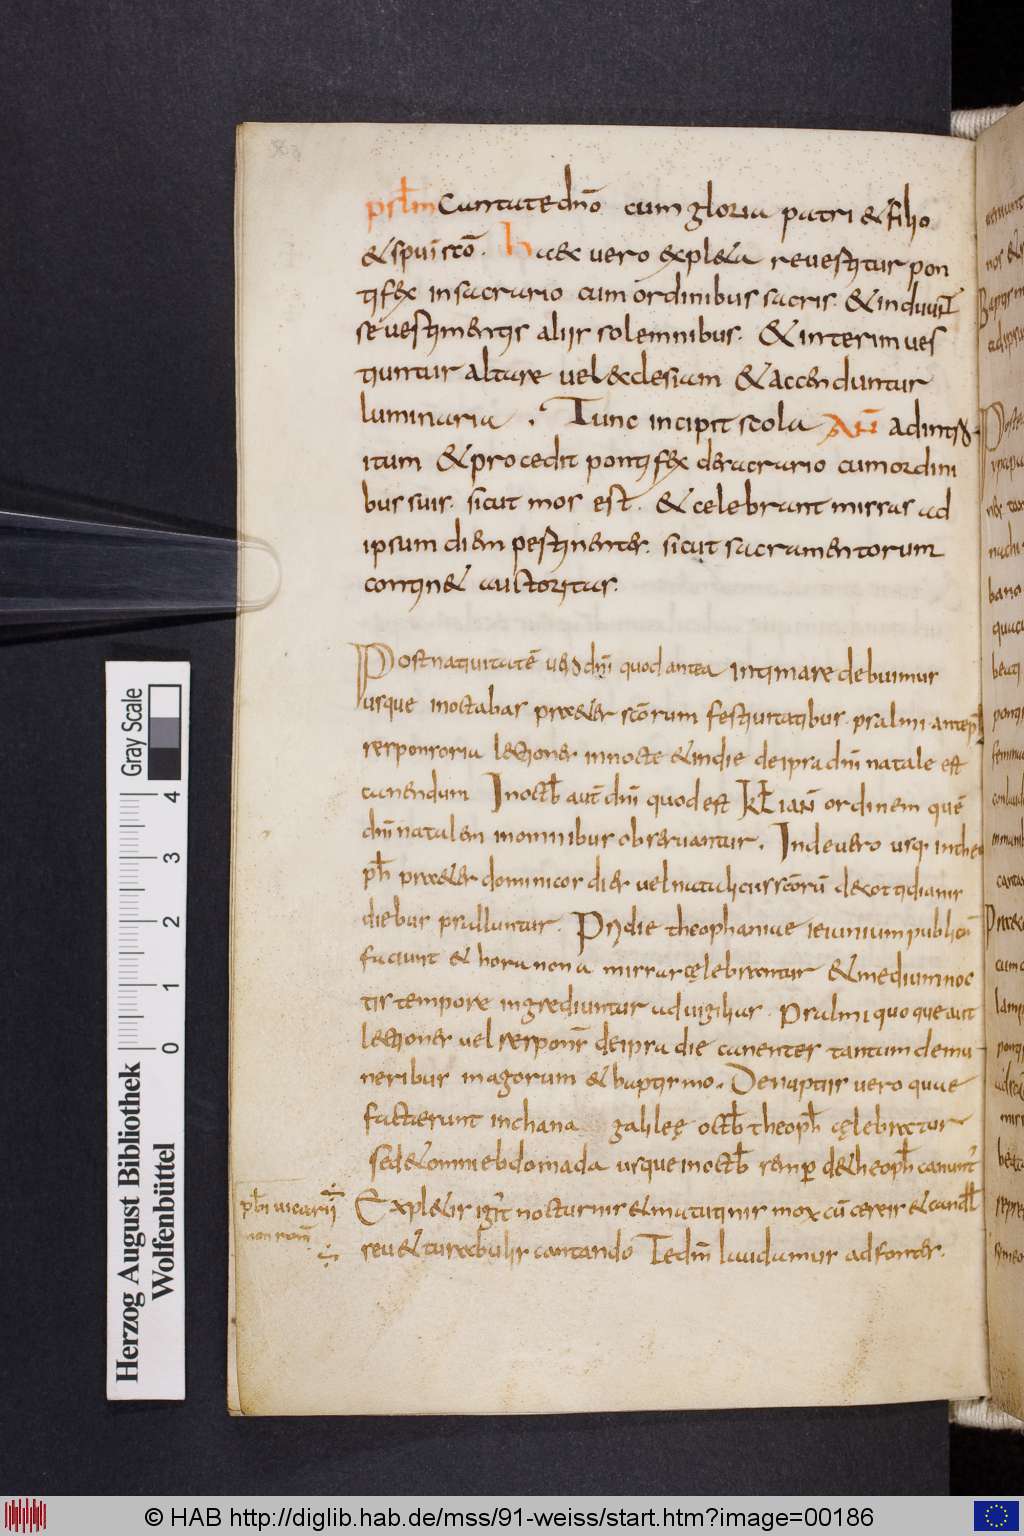 pslm Cantate dno cum gloria patri & filio
& spui sco. haec vero expleta revestitur pon
tifex in sacrario cum ordinibus sacris. & induunt
se vestimentis aliis solemnibus. & interim ves
tiuntur altare vel ecclesiam & accenduntur
luminaria. Tunc incipit scola AN ad intro
itum & procedit pontifex de sacrario cum ordini
bus suis. sicut mos est. & celebrant missas ad
ipsum diem pestinenter. sicut sacramentorum
continet auctoritas.
Post natiuitatē uero dni quod antea intimare debuimus
usque in octabas praeter scorum festiuitatibus. psalmi antepħ
responsoria lectiones in nocte & in die de ipsa dni natale est
canendum In octb aut dni quod est kł ian ordinem quē
dni natalem in omnibus obseruantur. Inde uero usq in theo
ph praeter dominicos dies uel natalicus scorū de cotidianis
diebus psalluntur. Pridie theophaniae ieiunium publicū
faciunt & hora nona missas celebrantur & medium noc
tis tempore ingrediuntur ad uigilias. Psalmi quoque aut
lectiones uel respons de ipsa die canentes tantum de mu
neribus magorum & baptismo. De naptiis uero quae
facta erunt in chana galileę octb theoph celebratur
sed & omni ebdomada usque in octb semp de theoph canunt
Expletis igit nocturnis & matutinis mox cū cereis & candl
seu & turabulis cantando Te dm laudamus ad fontes.
pbi uicarii
non rom
Herzog August Bibliothek
Wolfenbüttel
Gray Scale
0 1 2 3 4
© HAB http://diglib.hab.de/mss/91-weiss/start.htm?image=00186